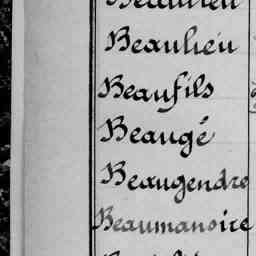 Beaulieu
Beaufils
Beaugé
Beaugendre
Beaumanoire